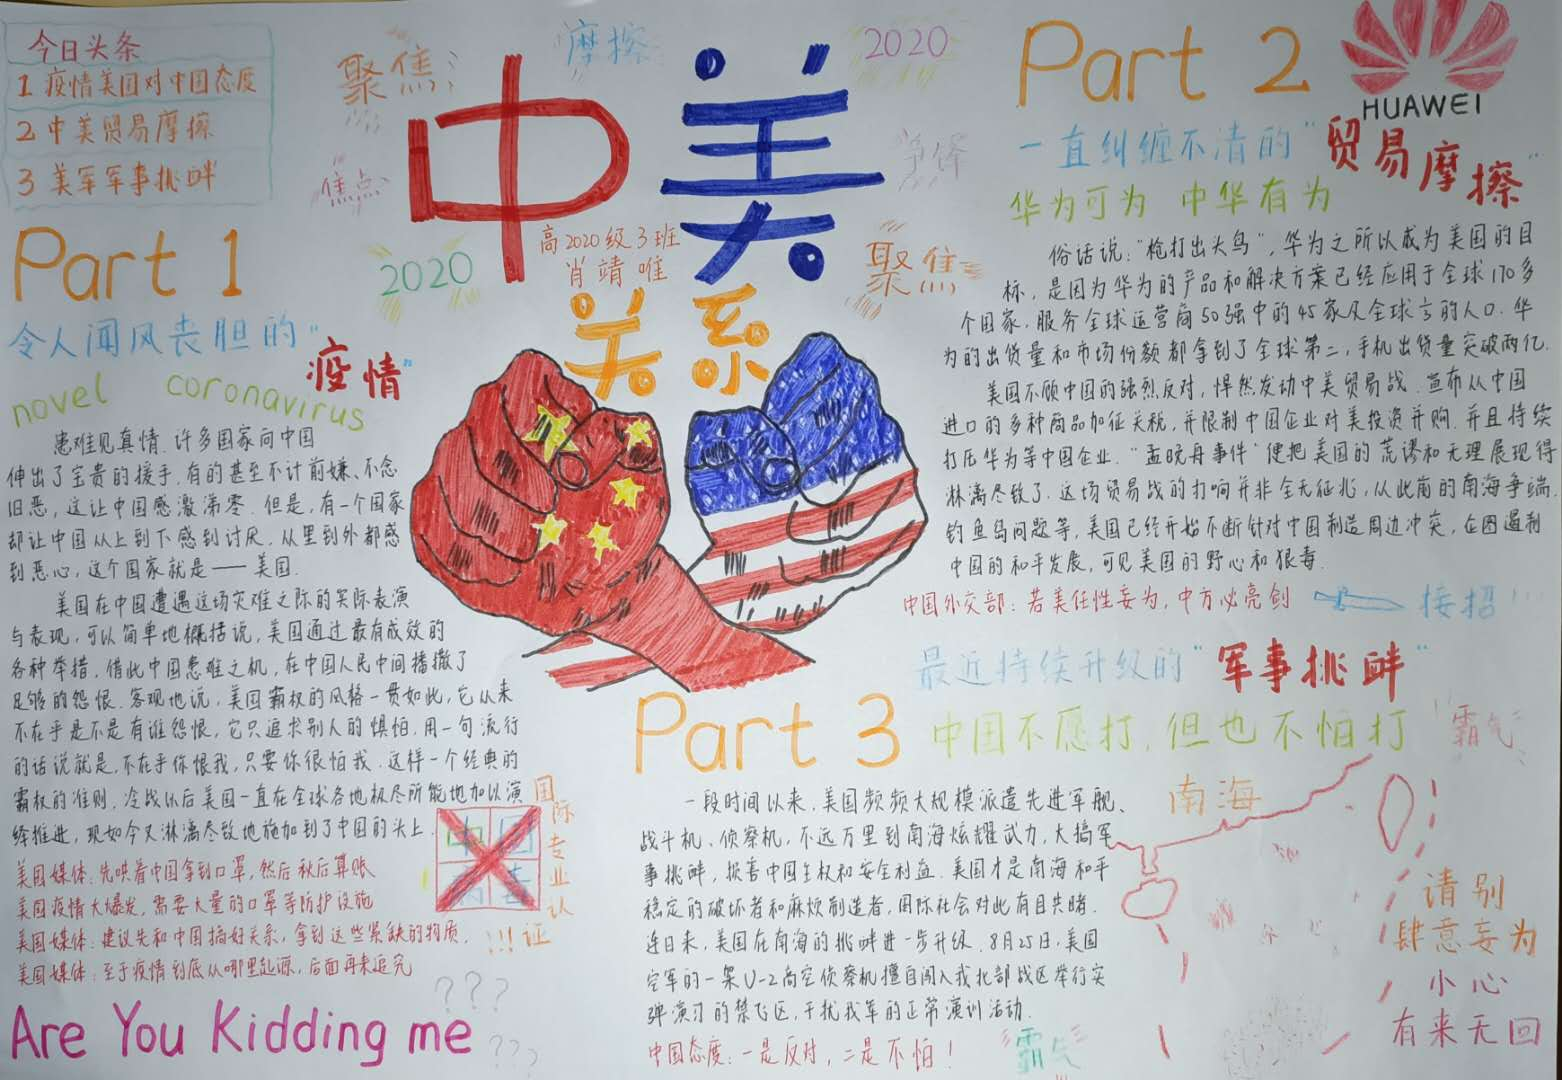 今日头条
1 疫情美国对中国态度
2 中美贸易摩擦
3 美军军事挑衅
聚焦
摩擦
2020
焦点
争锋
2020
聚焦
中美
关系
高2020级3班
肖靖唯
Part 1
令人闻风丧胆的"疫情"
novel coronavirus
患难见真情.许多国家向中国
伸出了宝贵的援手.有的甚至不计前嫌、不念
旧恶,这让中国感激涕零.但是,有一个国家
却让中国从上到下感到讨厌,从里到外都感
到恶心,这个国家就是——美国.
美国在中国遭遇这场灾难之际的实际表演
与表现,可以简单地概括说,美国通过最有成效的
各种举措,借此中国患难之机,在中国人民中间播撒了
足够的怨恨.客观地说,美国霸权的风格一贯如此,它从来
不在乎是不是有谁怨恨,它只追求别人的惧怕.用一句流行
的话说就是,不在乎你恨我,只要你很怕我.这样一个经典的
霸权的准则,冷战以后美国一直在全球各地极尽所能地加以演
绎推进,现如今又淋漓尽致地施加到了中国的头上.
美国媒体:先哄着中国拿到口罩,然后秋后算账
美国疫情大爆发,需要大量的口罩等防护设施
美国媒体:建议先和中国搞好关系,拿到这些紧缺的物质.
美国媒体:至于疫情到底从哪里起源,后面再来追究
国际专业认证
!!!
???
???
Are You Kidding me
Part 2
HUAWEI
一直纠缠不清的"贸易摩擦"
华为可为 中华有为
俗话说:"枪打出头鸟",华为之所以成为美国的目
标,是因为华为的产品和解决方案已经应用于全球170多
个国家,服务全球运营商50强中的45家及全球⅓的人口.华
为的出货量和市场份额都拿到了全球第二,手机出货量突破两亿.
美国不顾中国的强烈反对,悍然发动中美贸易战.宣布从中国
进口的多种商品加征关税,并限制中国企业对美投资并购.并且持续
打压华为等中国企业."孟晚舟事件"便把美国的荒谬和无理展现得
淋漓尽致了.这场贸易战的打响并非全无征兆,从此前的南海争端.
钓鱼岛问题等,美国已经开始不断针对中国制造周边冲突,企图遏制
中国的和平发展,可见美国的野心和狠毒.
中国外交部:若美任性妄为,中方必亮剑
接招!!!
Part 3
最近持续升级的"军事挑衅"
中国不愿打,但也不怕打
霸气
南海
一段时间以来,美国频频大规模派遣先进军舰、
战斗机、侦察机,不远万里到南海炫耀武力,大搞军
事挑衅,损害中国主权和安全利益.美国才是南海和平
稳定的破坏者和麻烦制造者,国际社会对此有目共睹.
连日来,美国在南海的挑衅进一步升级.8月25日,美国
空军的一架U-2高空侦察机擅自闯入我北部战区举行实
弹演习的禁飞区,干扰我军的正常演训活动.
中国态度:一是反对,二是不怕!
霸气
请别
肆意妄为
小心
有来无回